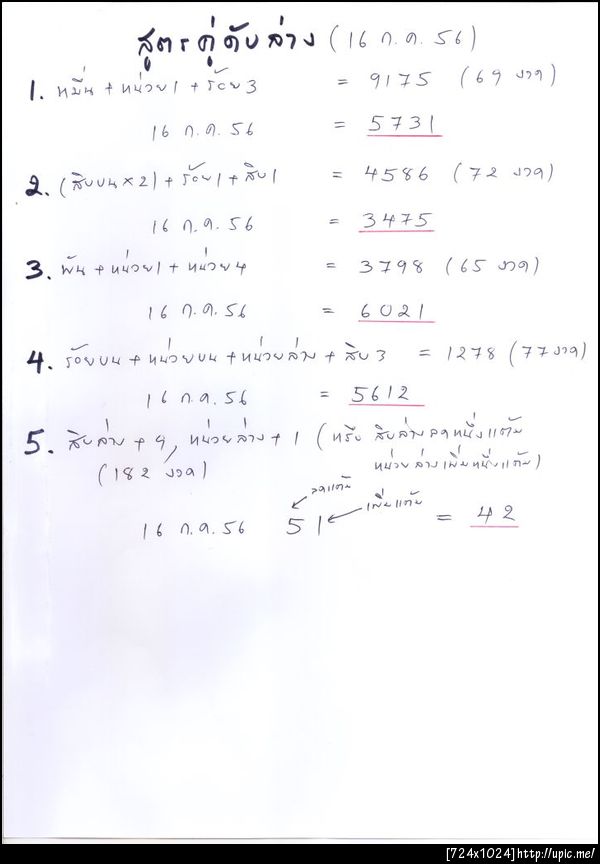 สูตรคู่ดับล่าง (16 ก.ค. 56)
1. หมื่น + หน่วย1 + ร้อย3 = 9175 (69 งวด)
16 ก.ค. 56 = 5731
2. (สิบบน×2) + ร้อย1 + สิบ1 = 4586 (72 งวด)
16 ก.ค. 56 = 3475
3. พัน + หน่วย1 + หน่วย4 = 3798 (65 งวด)
16 ก.ค. 56 = 6021
4. ร้อยบน + หน่วยบน + หน่วยล่าง + สิบ3 = 1278 (77 งวด)
16 ก.ค. 56 = 5612
5. สิบล่าง + 9, หน่วยล่าง + 1 (หรือ สิบล่างลดหนึ่งแต้ม
หน่วยล่างเพิ่มหนึ่งแต้ม)
(182 งวด)
ลดแต้ม
เพิ่มแต้ม
16 ก.ค. 56 51 = 42
[724x1024]http://upic.me/